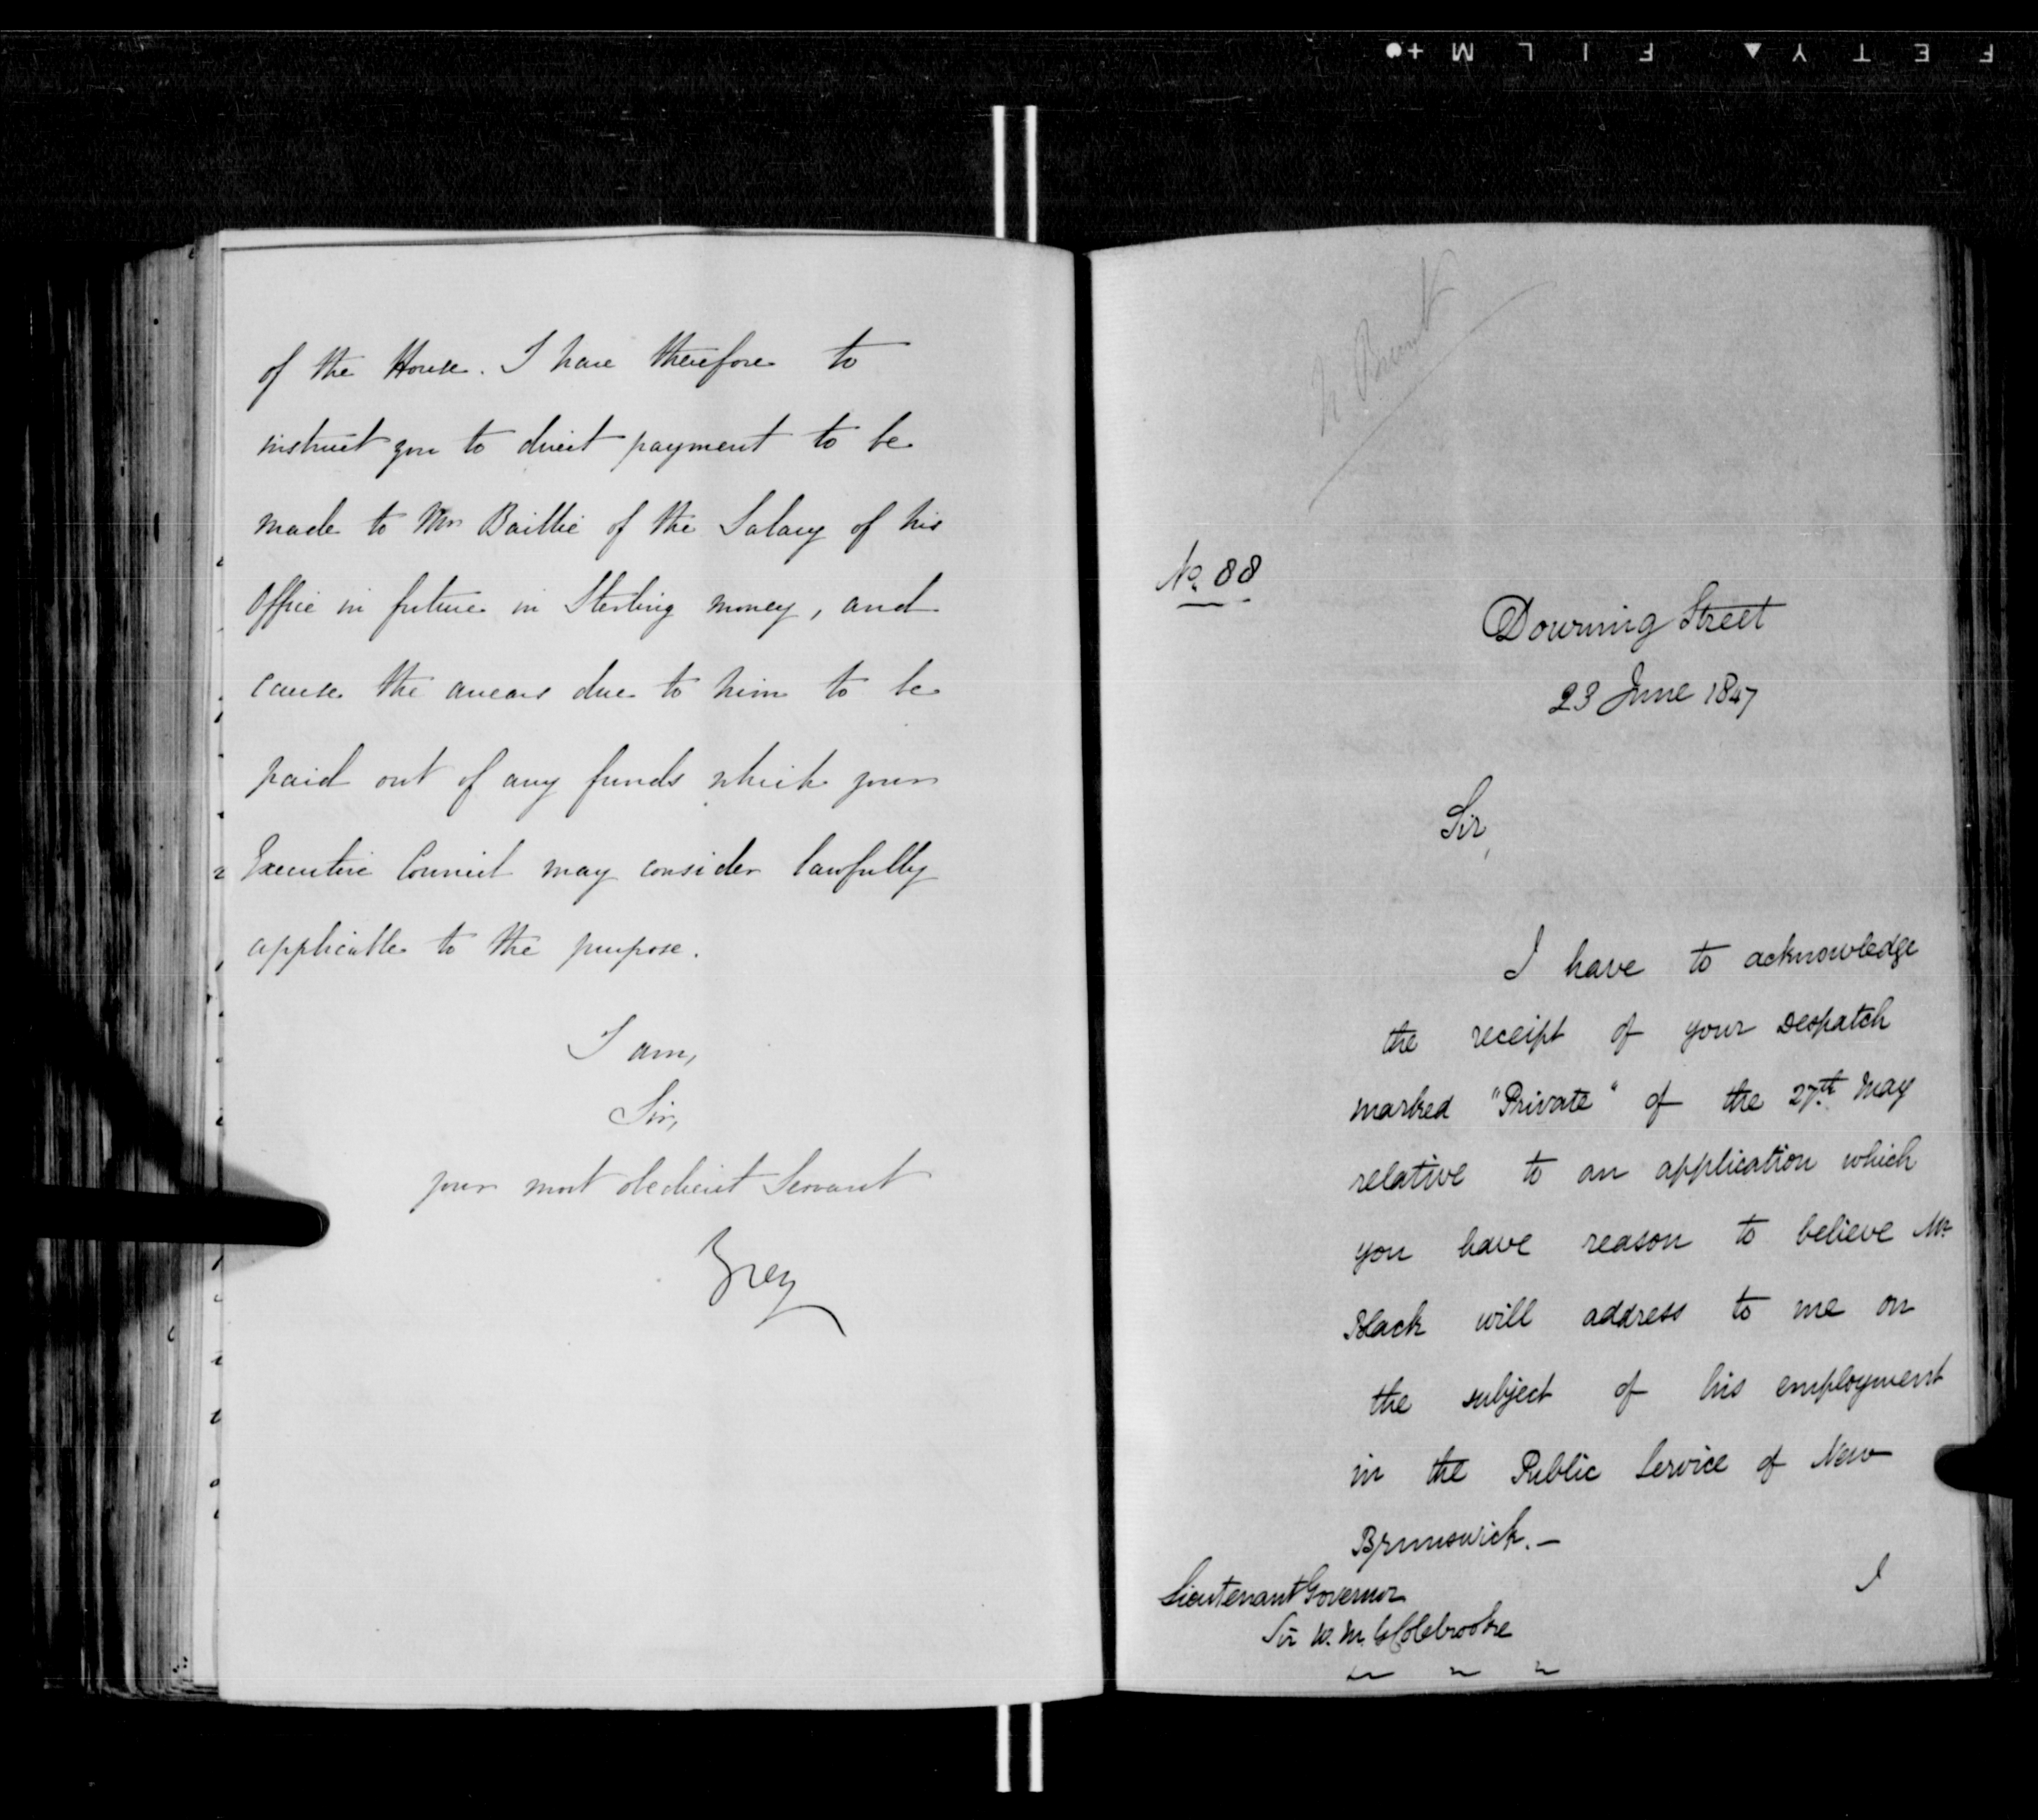 F E T Y ▲ F I L M +●
of the House. I have therefore to
instruct you to direct payment to be
made to Mr Baillie of the Salary of his
Office in future in Sterling money, and
cause the arrears due to him to be
paid out of any funds which your
Executive Council may consider lawfully
applicable to the purpose.
I am,
Sir,
your most obedient Servant
Grey
N. Brunswk
No. 88
Downing Street
23 June 1847
Sir,
I have to acknowledge
the receipt of your Despatch
marked "Private" of the 27th May
relative to an application which
you have reason to believe Mr
Black will address to me on
the subject of his employment
in the Public Service of New
Brunswick. —
I
Lieutenant Governor
Sir W. M. G. Colebrooke